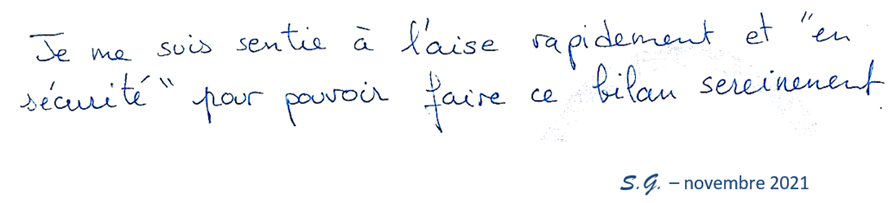 Je me suis sentie à l'aise rapidement et "en
sécurité" pour pouvoir faire ce bilan sereinement.
S.G. – novembre 2021